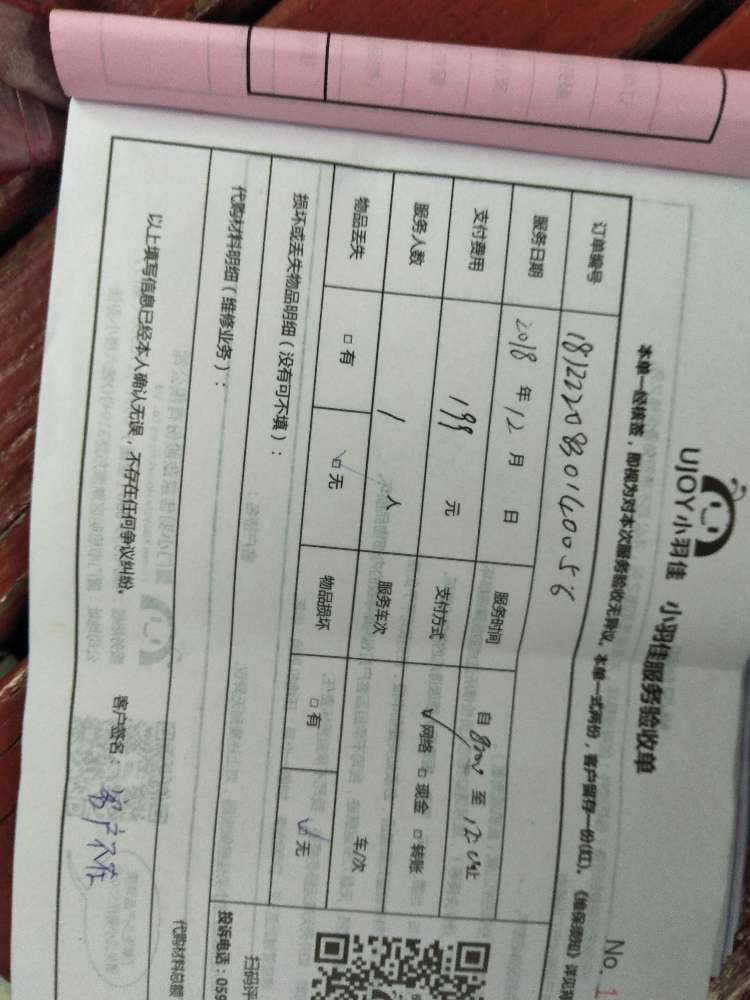 UJOY小羽佳 小羽佳服务验收单
No. 1
本单一经核签，即视为对本次服务验收无异议。本单一式两份，客户留存一份(红)。《维保须知》详见背
订单编号 1812220830140056
服务日期 2018 年 12 月 日 服务时间 自 8:00 至 12:00止
支付费用 199 元 支付方式 ☑网络 □现金 □转账
服务人数 1 人 服务车次 车/次
物品丢失 □有 ☑无 物品损坏 □有 ☑无
损坏或丢失物品明细（没有可不填）：
扫码评
代购材料明细（维修业务）：
投诉电话：059
代购材料总额
以上填写信息已经本人确认无误，不存在任何争议纠纷。 客户签名：客户不在